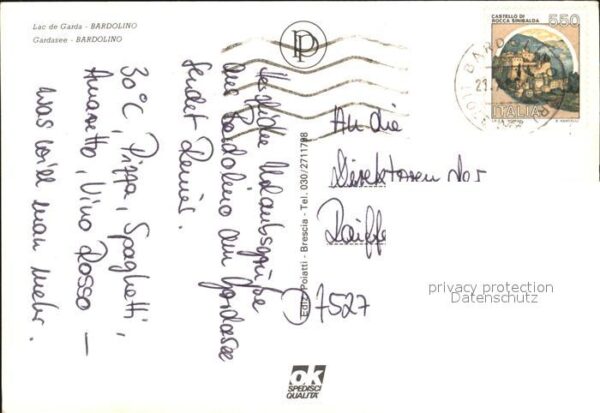 Lac de Garda - BARDOLINO
Gardasee - BARDOLINO
30°C, Pizza, Spaghetti,
Amaretto, Vino Rosso –
was will man mehr.
Herzliche Urlaubsgrüße
aus Bardolino am Gardasee
sendet
Ediz. Poiatti - Brescia - Tel. 030/2711798
PD
CASTELLO DI
ROCCA SINIBALDA
550
ITALIA
BARD
21
An die
Direktoren der
Raiffe
7527
privacy protection
Datenschutz
ok
SPEDISCI
QUALITÀ